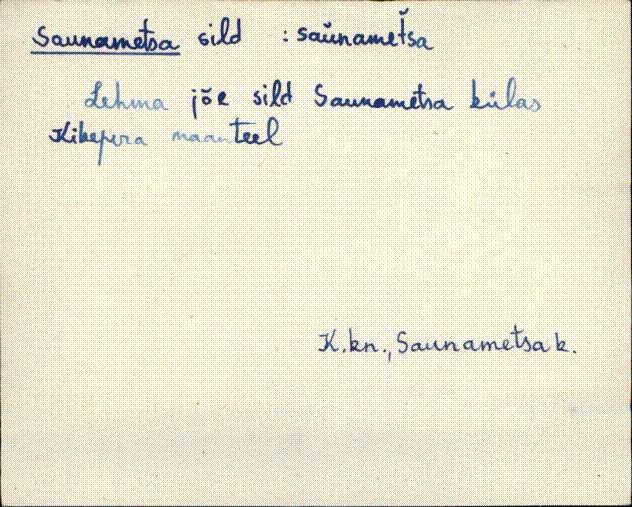 Saunametsa sild : saũnamet̆sa
Lehma jõe sild Saunametsa külas
Kikepera maanteel
K.kn., Saunametsa k.